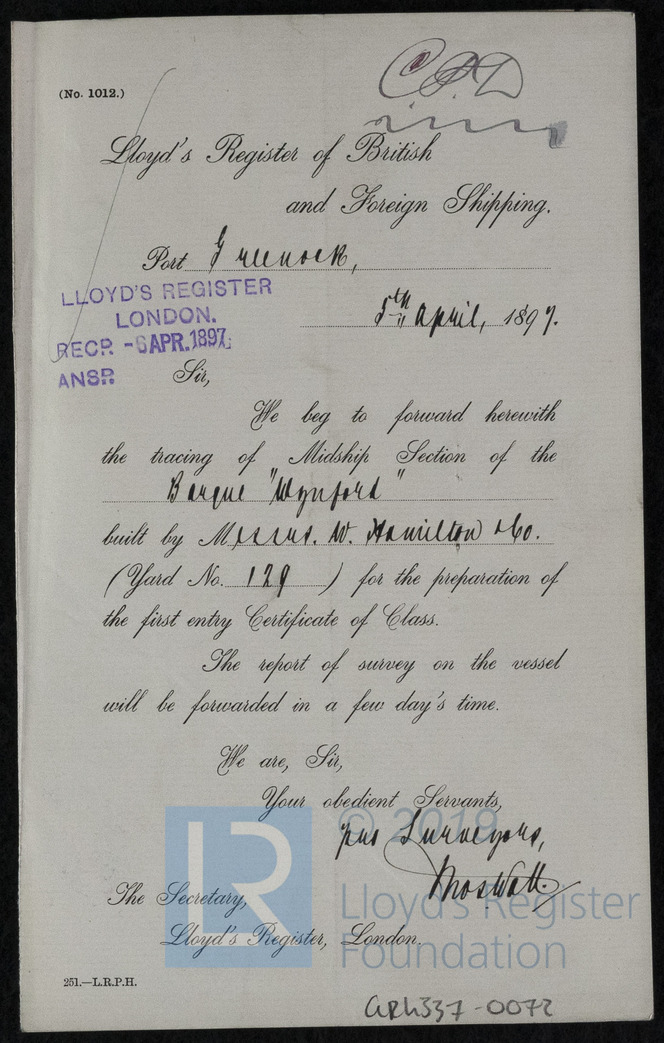 (No. 1012.)
Lloyd's Register of British
and Foreign Shipping.
Port Greenock,
LLOYD'S REGISTER
LONDON.
RECP. -6 APR. 1897
ANSP.
5th April, 1897.
Sir,
We beg to forward herewith
the tracing of Midship Section of the
Barque "Wynford"
built by Messrs. W. Hamilton & Co.
(Yard No. 129) for the preparation of
the first entry Certificate of Class.
The report of survey on the vessel
will be forwarded in a few day's time.
We are, Sir,
Your obedient Servants,
© 2019
Surveyors,
Thos Watt.
The Secretary,
Lloyd's Register, London.
LR
Lloyd's Register
Foundation
251.—L.R.P.H.
GRK337-0072